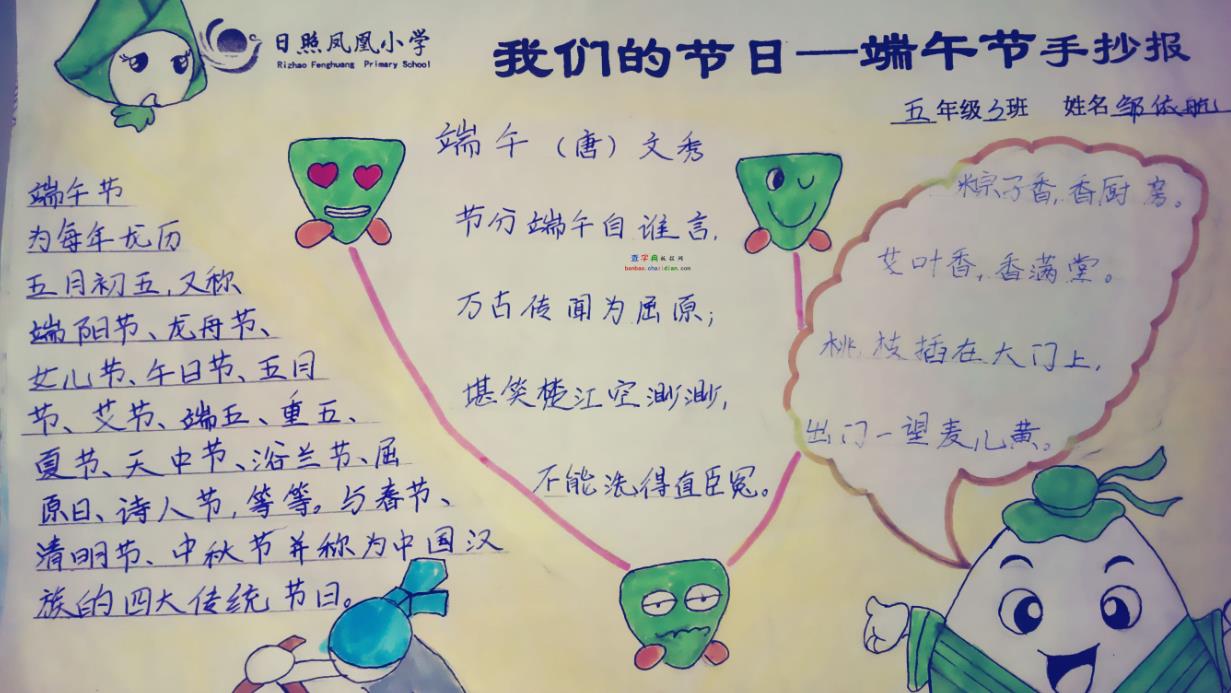 日照凤凰小学
Rizhao Fenghuang Primary School
我们的节日—端午节手抄报
五年级3班 姓名邹依航
端午节
为每年龙历
五月初五,又称
端阳节、龙舟节、
女儿节、午日节、五月
节、艾节、端五、重五、
夏节、天中节、浴兰节、屈
原日、诗人节,等等。与春节、
清明节、中秋节并称为中国汉
族的四大传统节日。
端午(唐)文秀
节分端午自谁言,
万古传闻为屈原;
堪笑楚江空渺渺,
不能洗得直臣冤。
查字典板报网
banbao.chazidian.com
粽子香,香厨房。
艾叶香,香满堂。
桃枝插在大门上,
出门一望麦儿黄。